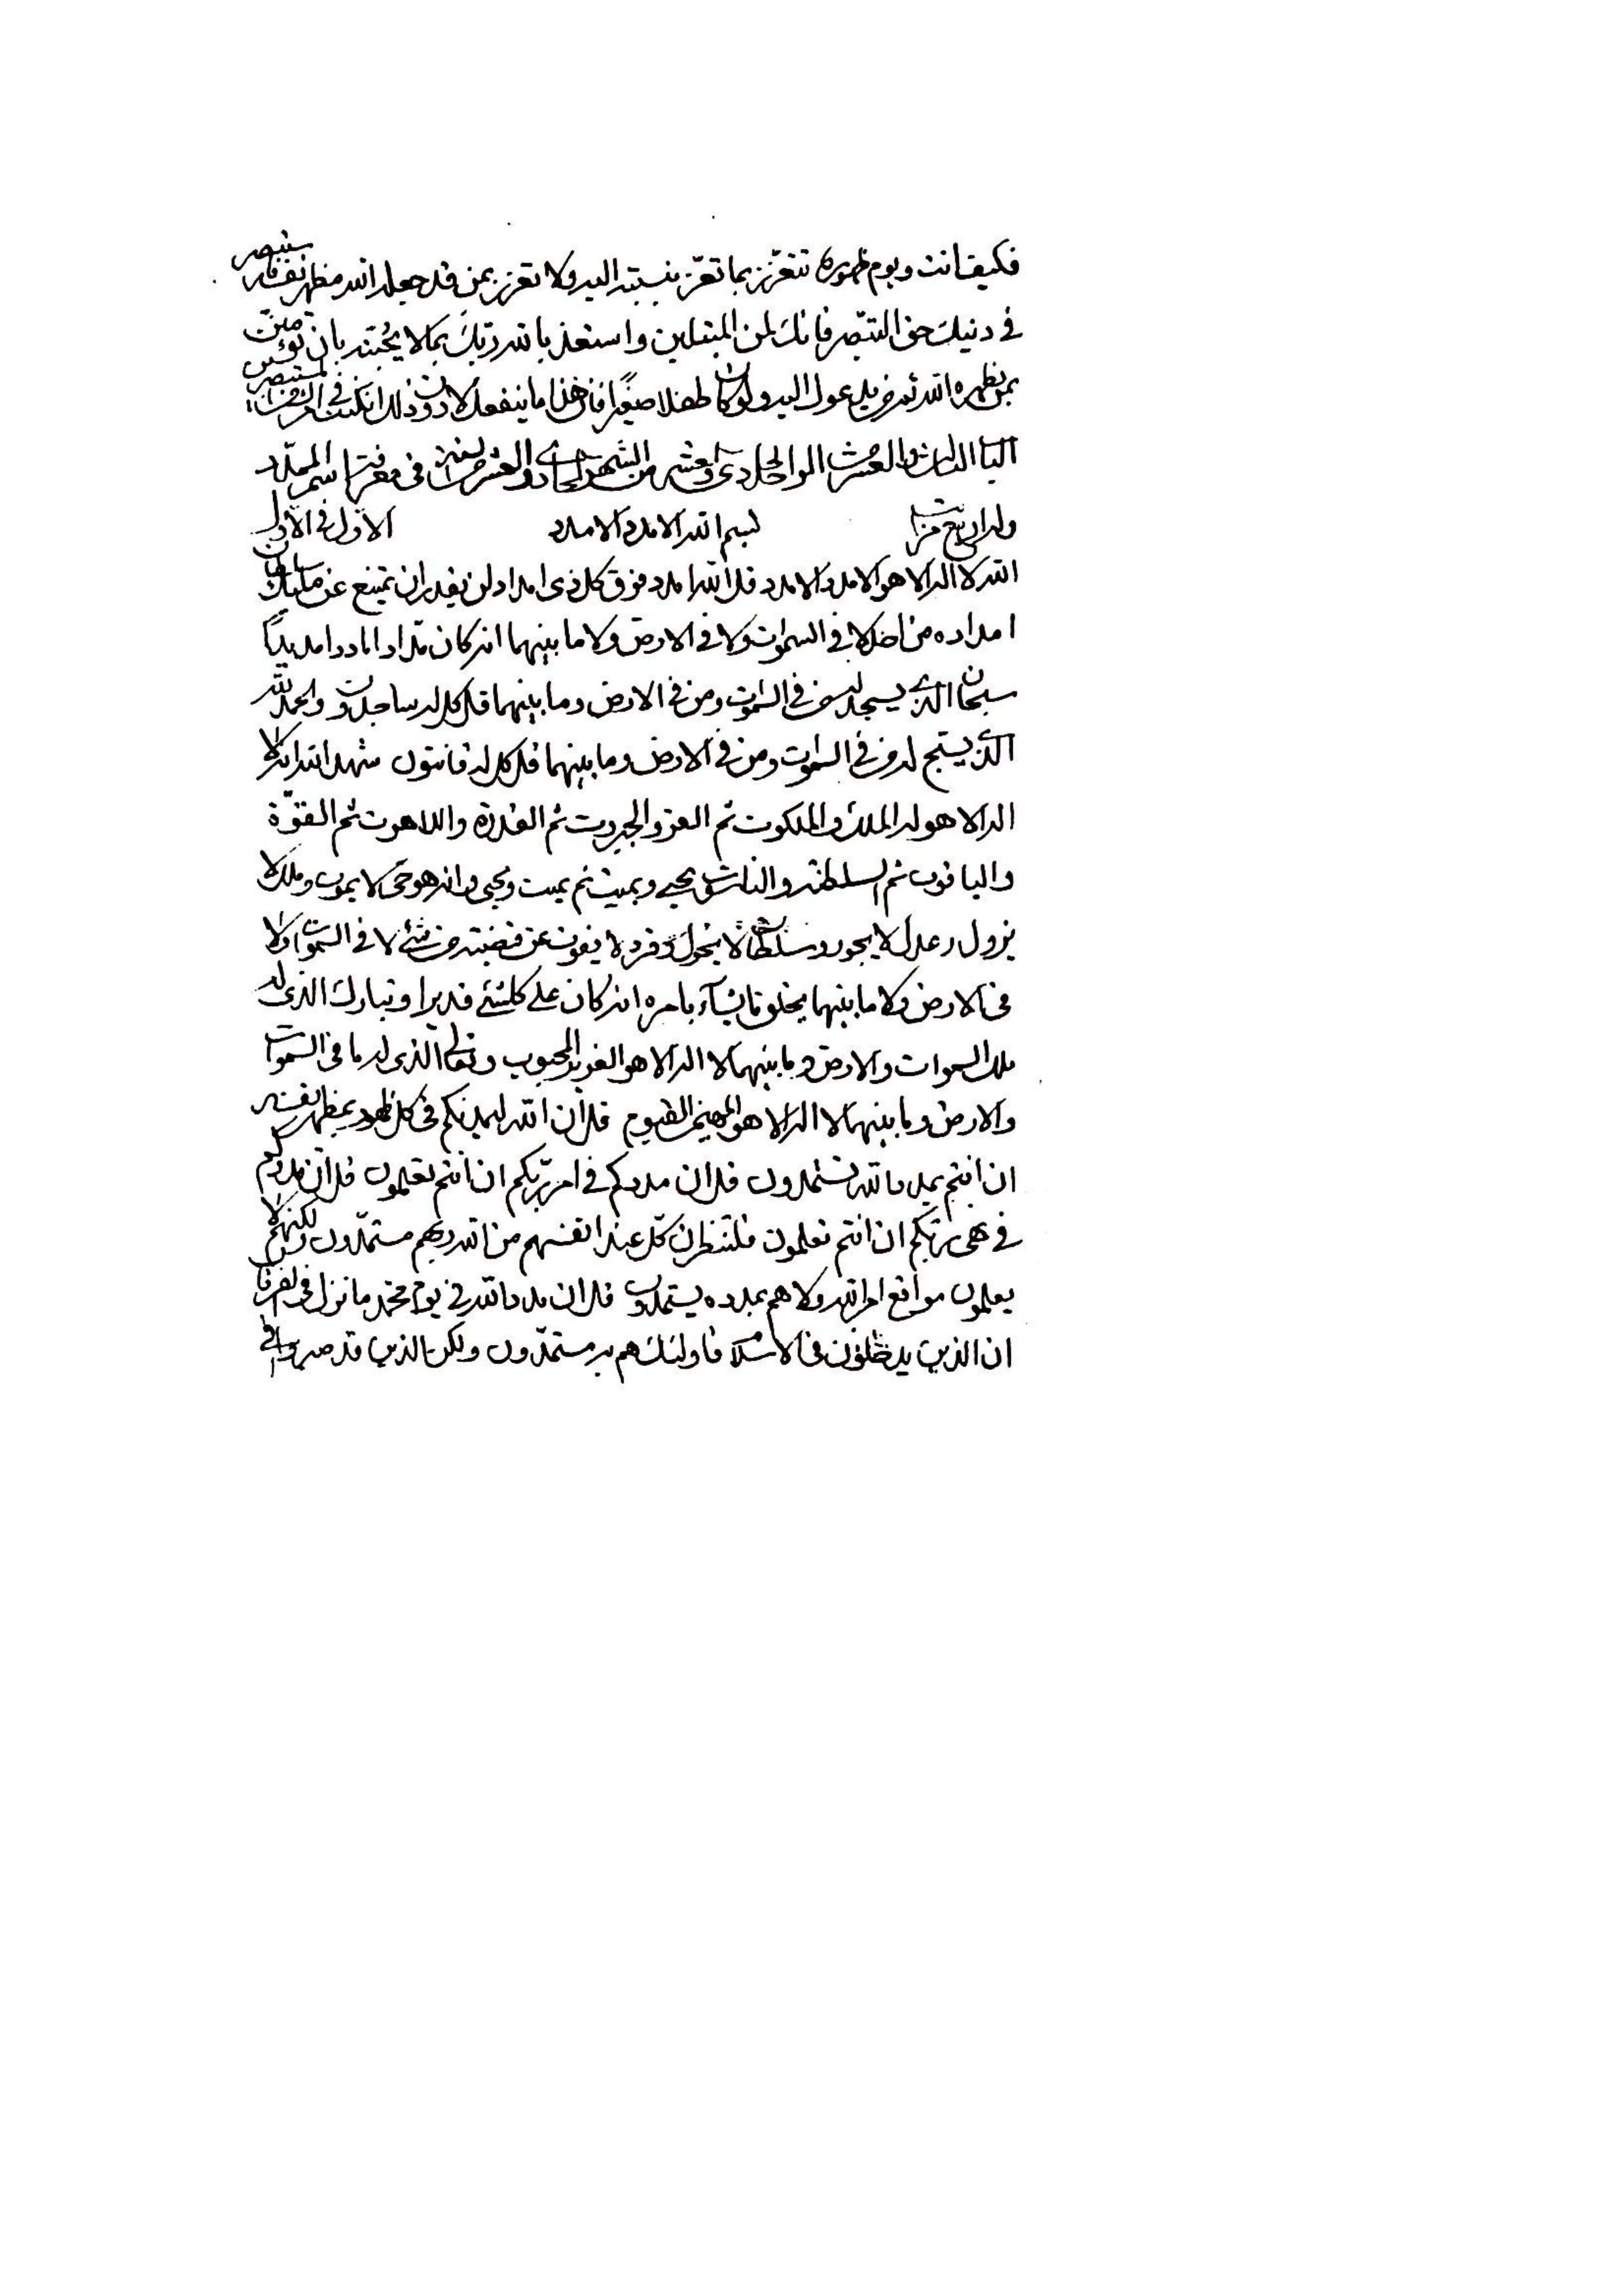 فكيف انت ويوم ظهوره تتعزز بما تعزّ بنسبته اليه ولا تعزز بمن قد جعله الله مظهر نفسه فلتستبصر
في دينك حق التبصّر فانك لمن المبتلين واستعذ بالله ربّك بما لا يحبّنه بان تؤمننّ
بمن يظهره الله ثم من يدعوك اليه ولو كان طفلا صغيرا فان هذا ما ينفعك لا دون ذلك ان كنت في من المستبصرين
الباب الثالث والعشر من الواحد الحادي والعشر من الشهر الحادي والعشر من السنة في معرفة اسم الممدّد
وله اربع مراتب الاول في الاول بسم الله الامدد الامدد
الله لا اله الا هو الامدد الامدد قل الله امدد فوق كل ذي امداد لن يقدر ان يمتنع عن مليك سلطان
امداده من احد لا في السموات ولا في الارض ولا ما بينهما انه كان مدّادا ماددا مديدا
سبحان الذي يسجد له من في السموات ومن في الارض وما بينهما قل كل له ساجدون والحمد لله
الذي يسبّح له من في السموات ومن في الارض وما بينهما قل كل له قانتون شهد الله انه لا
اله الا هو له الملك والملكوت ثم العز والجبروت ثم القدرة واللاهوت ثم القوّة
والياقوت ثم السلطنة والناسوت يحيي ويميت ثم يميت ويحيى وانه هو حي لا يموت وملك لا
يزول وعدل لا يجور وسلطان لا يحول وفرد لا يفوت عن قبضته من شئ لا في السموات ولا
في الارض ولا ما بينهما يخلق ما يشآء بامره انه كان على كلشئ قديرا وتبارك الذي له
ملك السموات والارض وما بينهما لا اله الا هو الفرد المحبوب وتعالى الذي له ما في السموات
والارض وما بينهما لا اله الا هو المهيمن القيوم قل ان الله ليمدنّكم في كل ظهور بمظهر نفسه
ان انتم بمدد الله تستمدون قل ان مددكم في امر ربّكم ان انتم تعلمون قل ان مددكم
في نهى ربّكم ان انتم تعلمون فلتنظرن كلّ عند انفسهم من الله ربهم مستمدّون ولكنهم لا
يعلمون مواقع امر الله ولا هم بمدده يستمدون قل ان مدد الله في يوم محمد ما نزل في الفرقان
ان الذين يدخلون في الاسلام فاولئك هم به مستمدّون ولكن الذين قد صبروا في